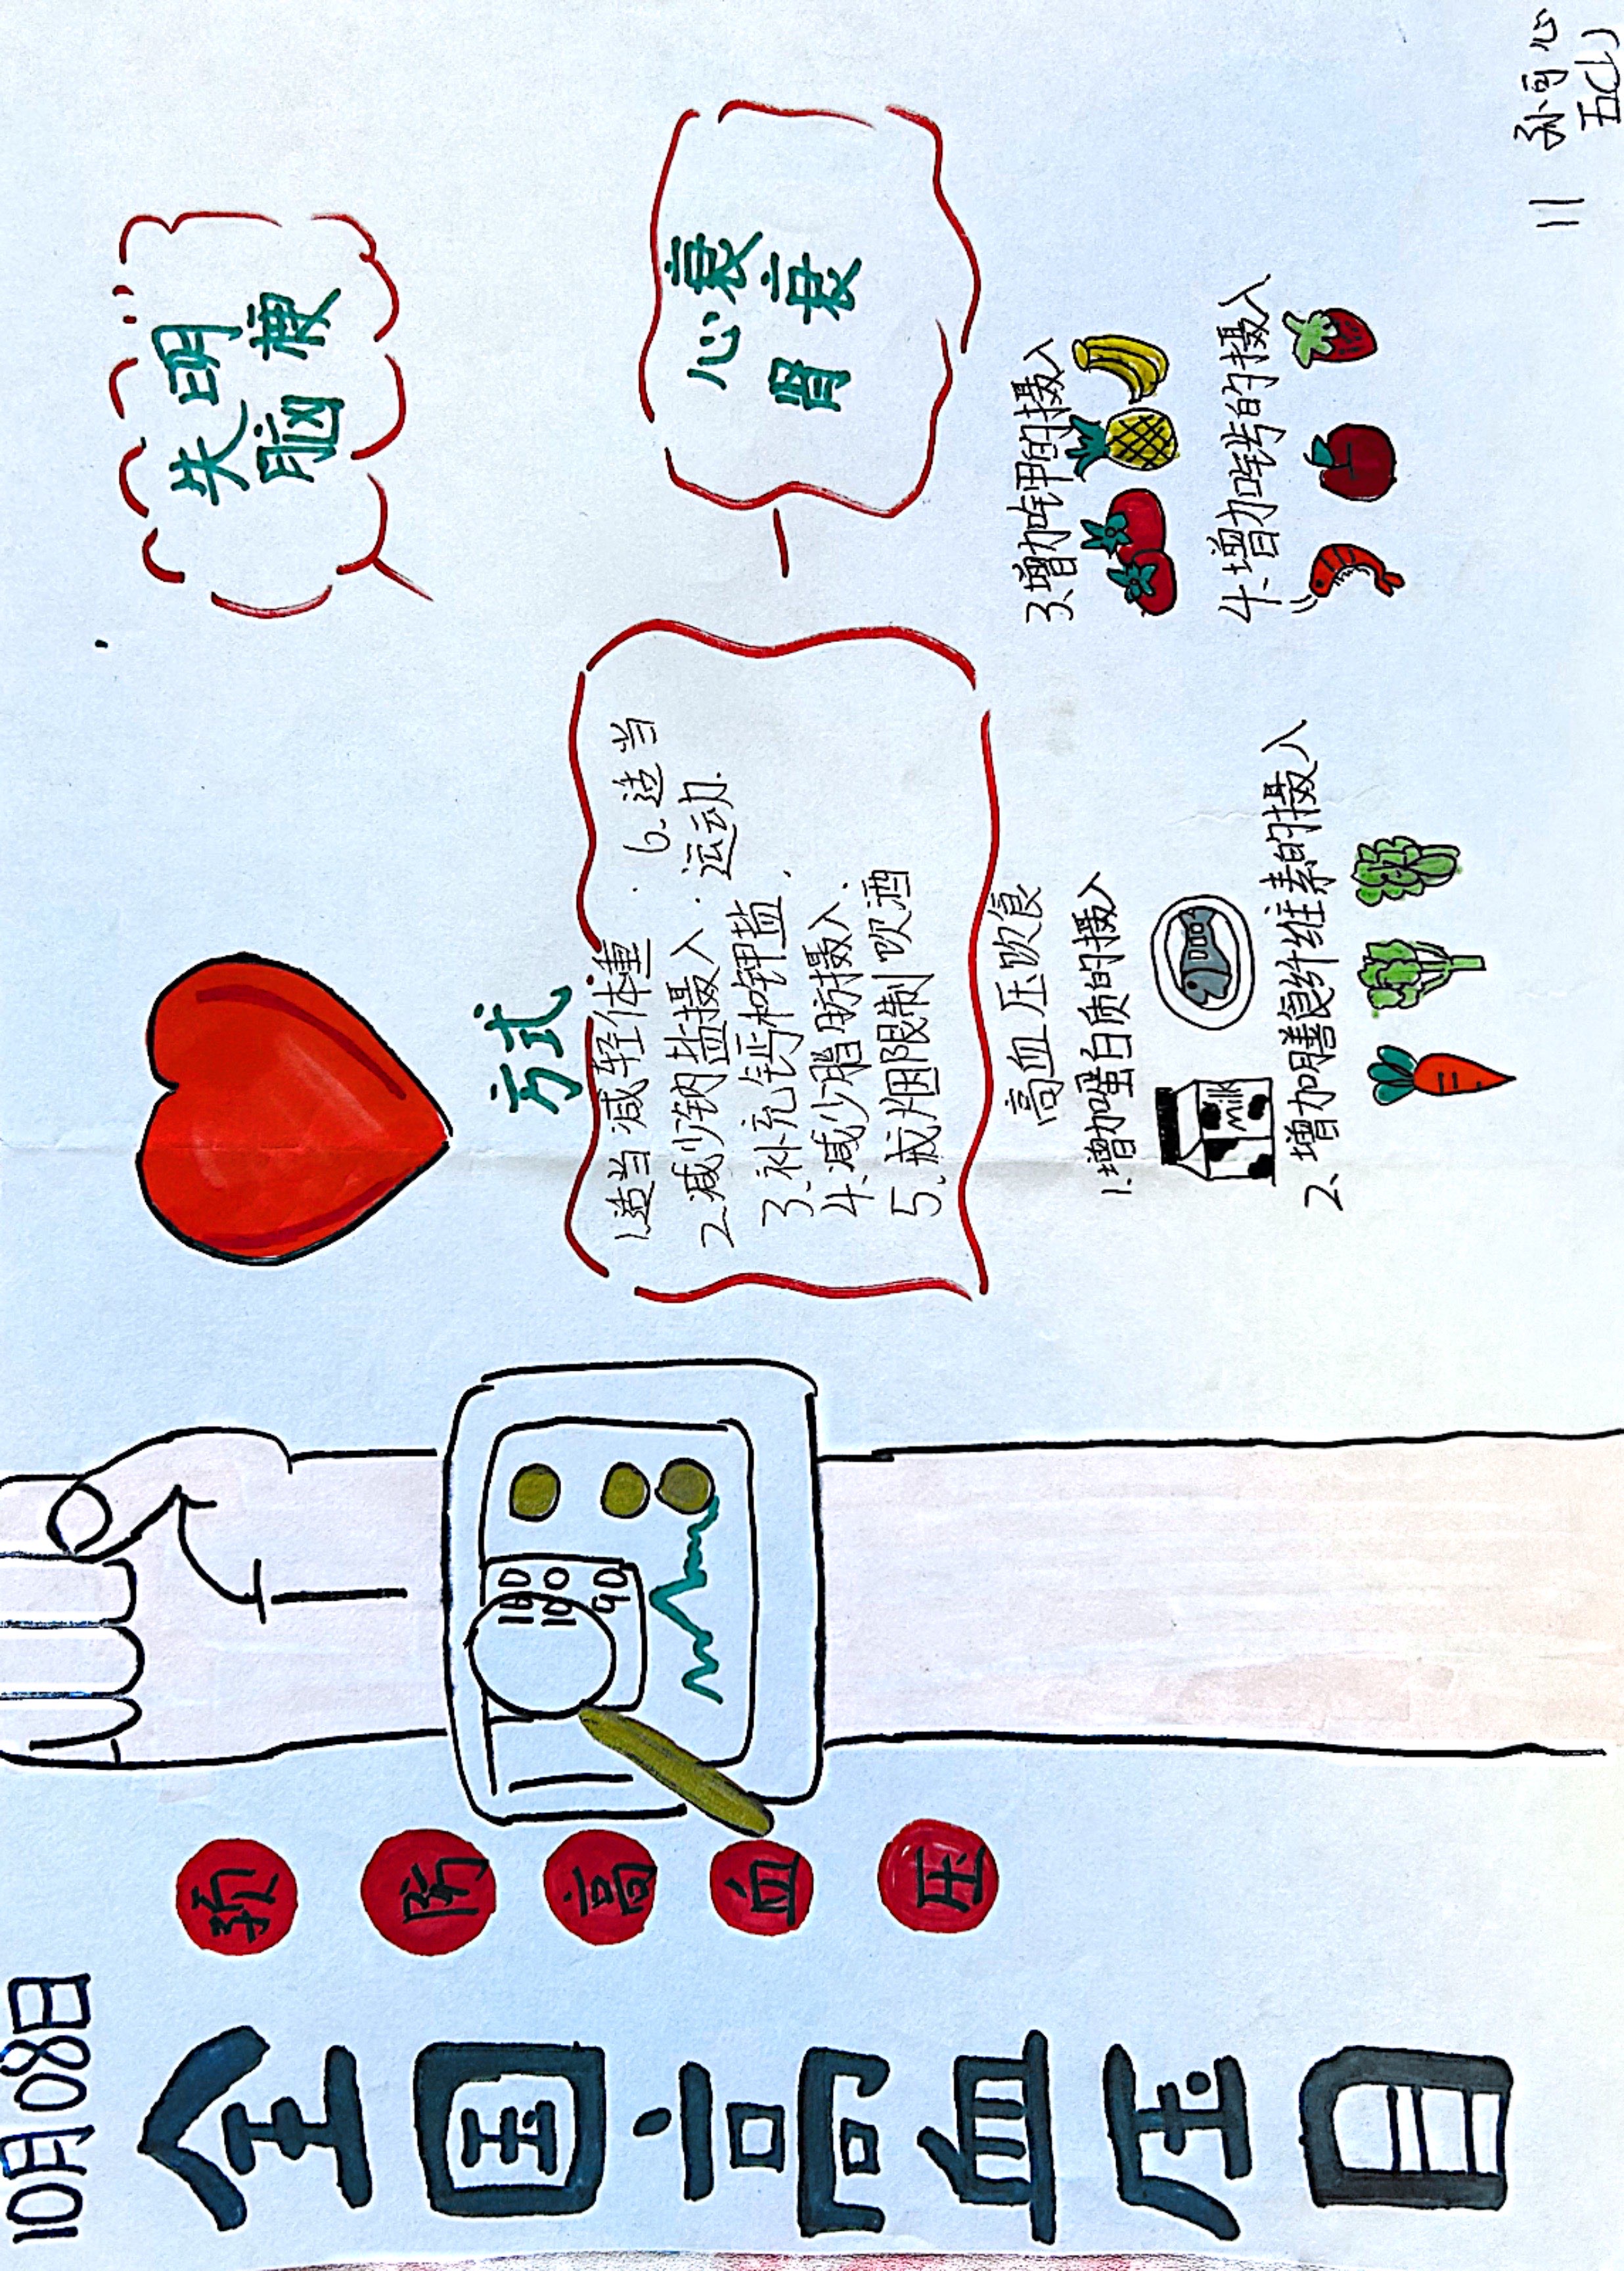 10月08日
全国高血压日
预防高血压
失明
脑梗
心衰
肾衰
方式
1.适当减轻体重.
2.减少钠盐摄入.
3.补充钙和钾盐.
4.减少脂肪摄入.
5.戒烟限制饮酒
6.适当
运动.
高血压饮食
1.增加蛋白质的摄入
Milk
2、增加膳食纤维素的摄入
3.增加钾的摄入
4.增加钙的摄入
11 孙可心
五(1)